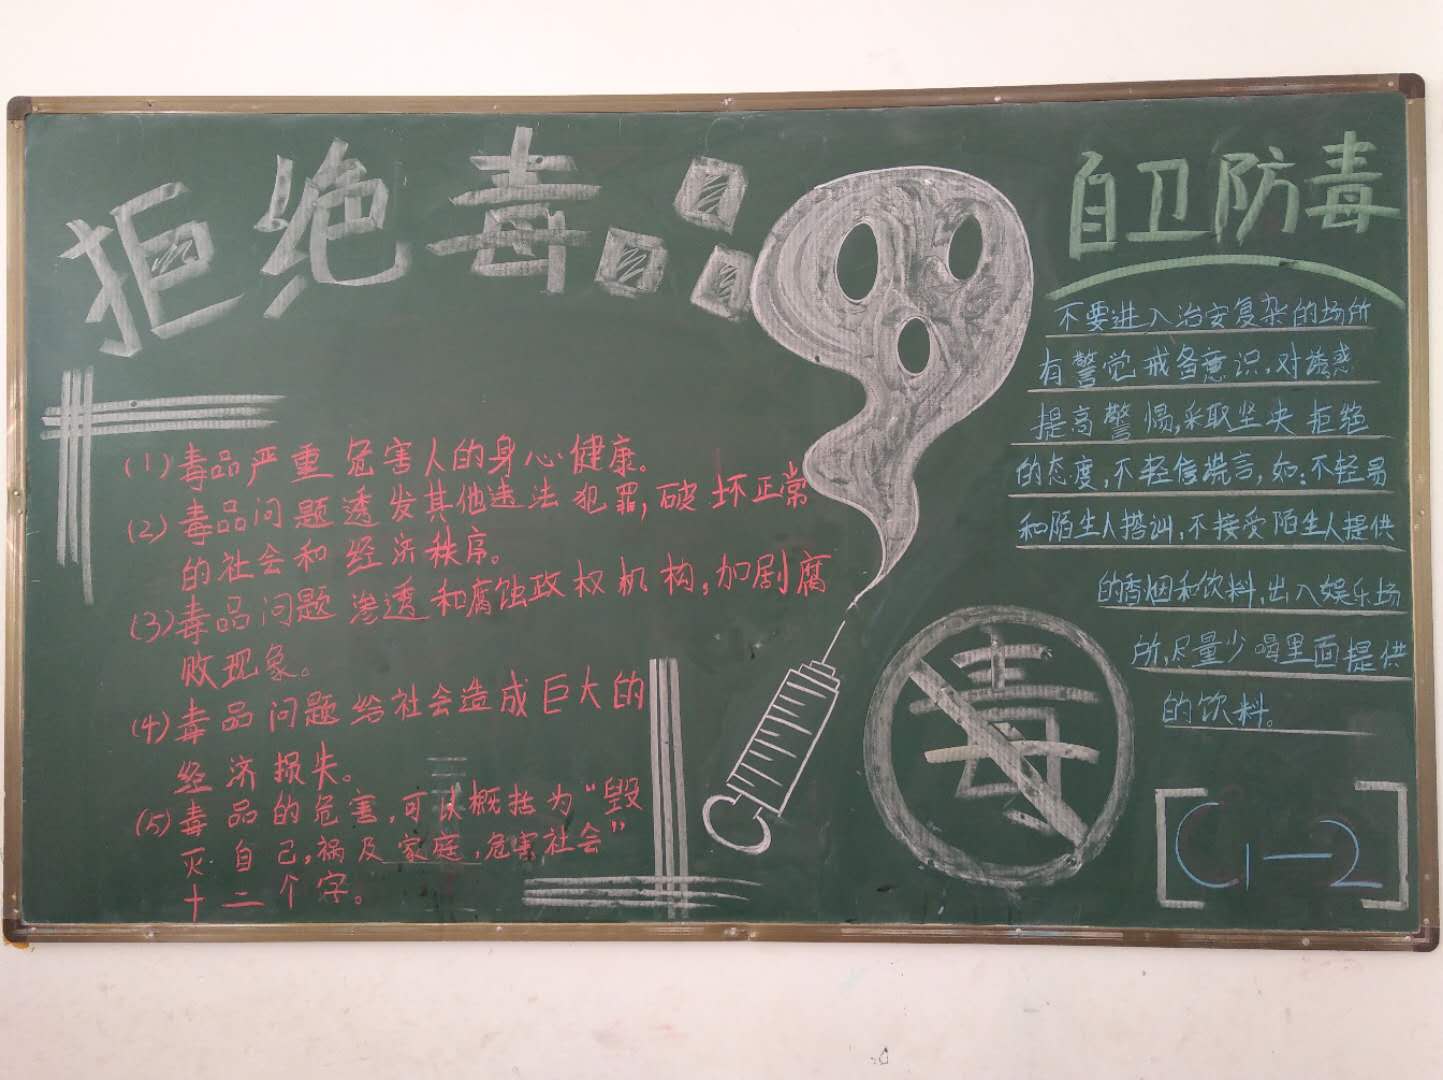 拒绝毒品
(1)毒品严重危害人的身心健康。
(2)毒品问题诱发其他违法犯罪,破坏正常
的社会和经济秩序。
(3)毒品问题渗透和腐蚀政权机构,加剧腐
败现象。
(4)毒品问题给社会造成巨大的
经济损失。
(5)毒品的危害,可以概括为“毁
灭自己,祸及家庭,危害社会”
十二个字。
自卫防毒
不要进入治安复杂的场所
有警觉戒备意识,对诱惑
提高警惕,采取坚决拒绝
的态度,不轻信谎言,如:不轻易
和陌生人搭讪,不接受陌生人提供
的香烟和饮料,出入娱乐场
所,尽量少喝里面提供
的饮料。
毒
[G-2]